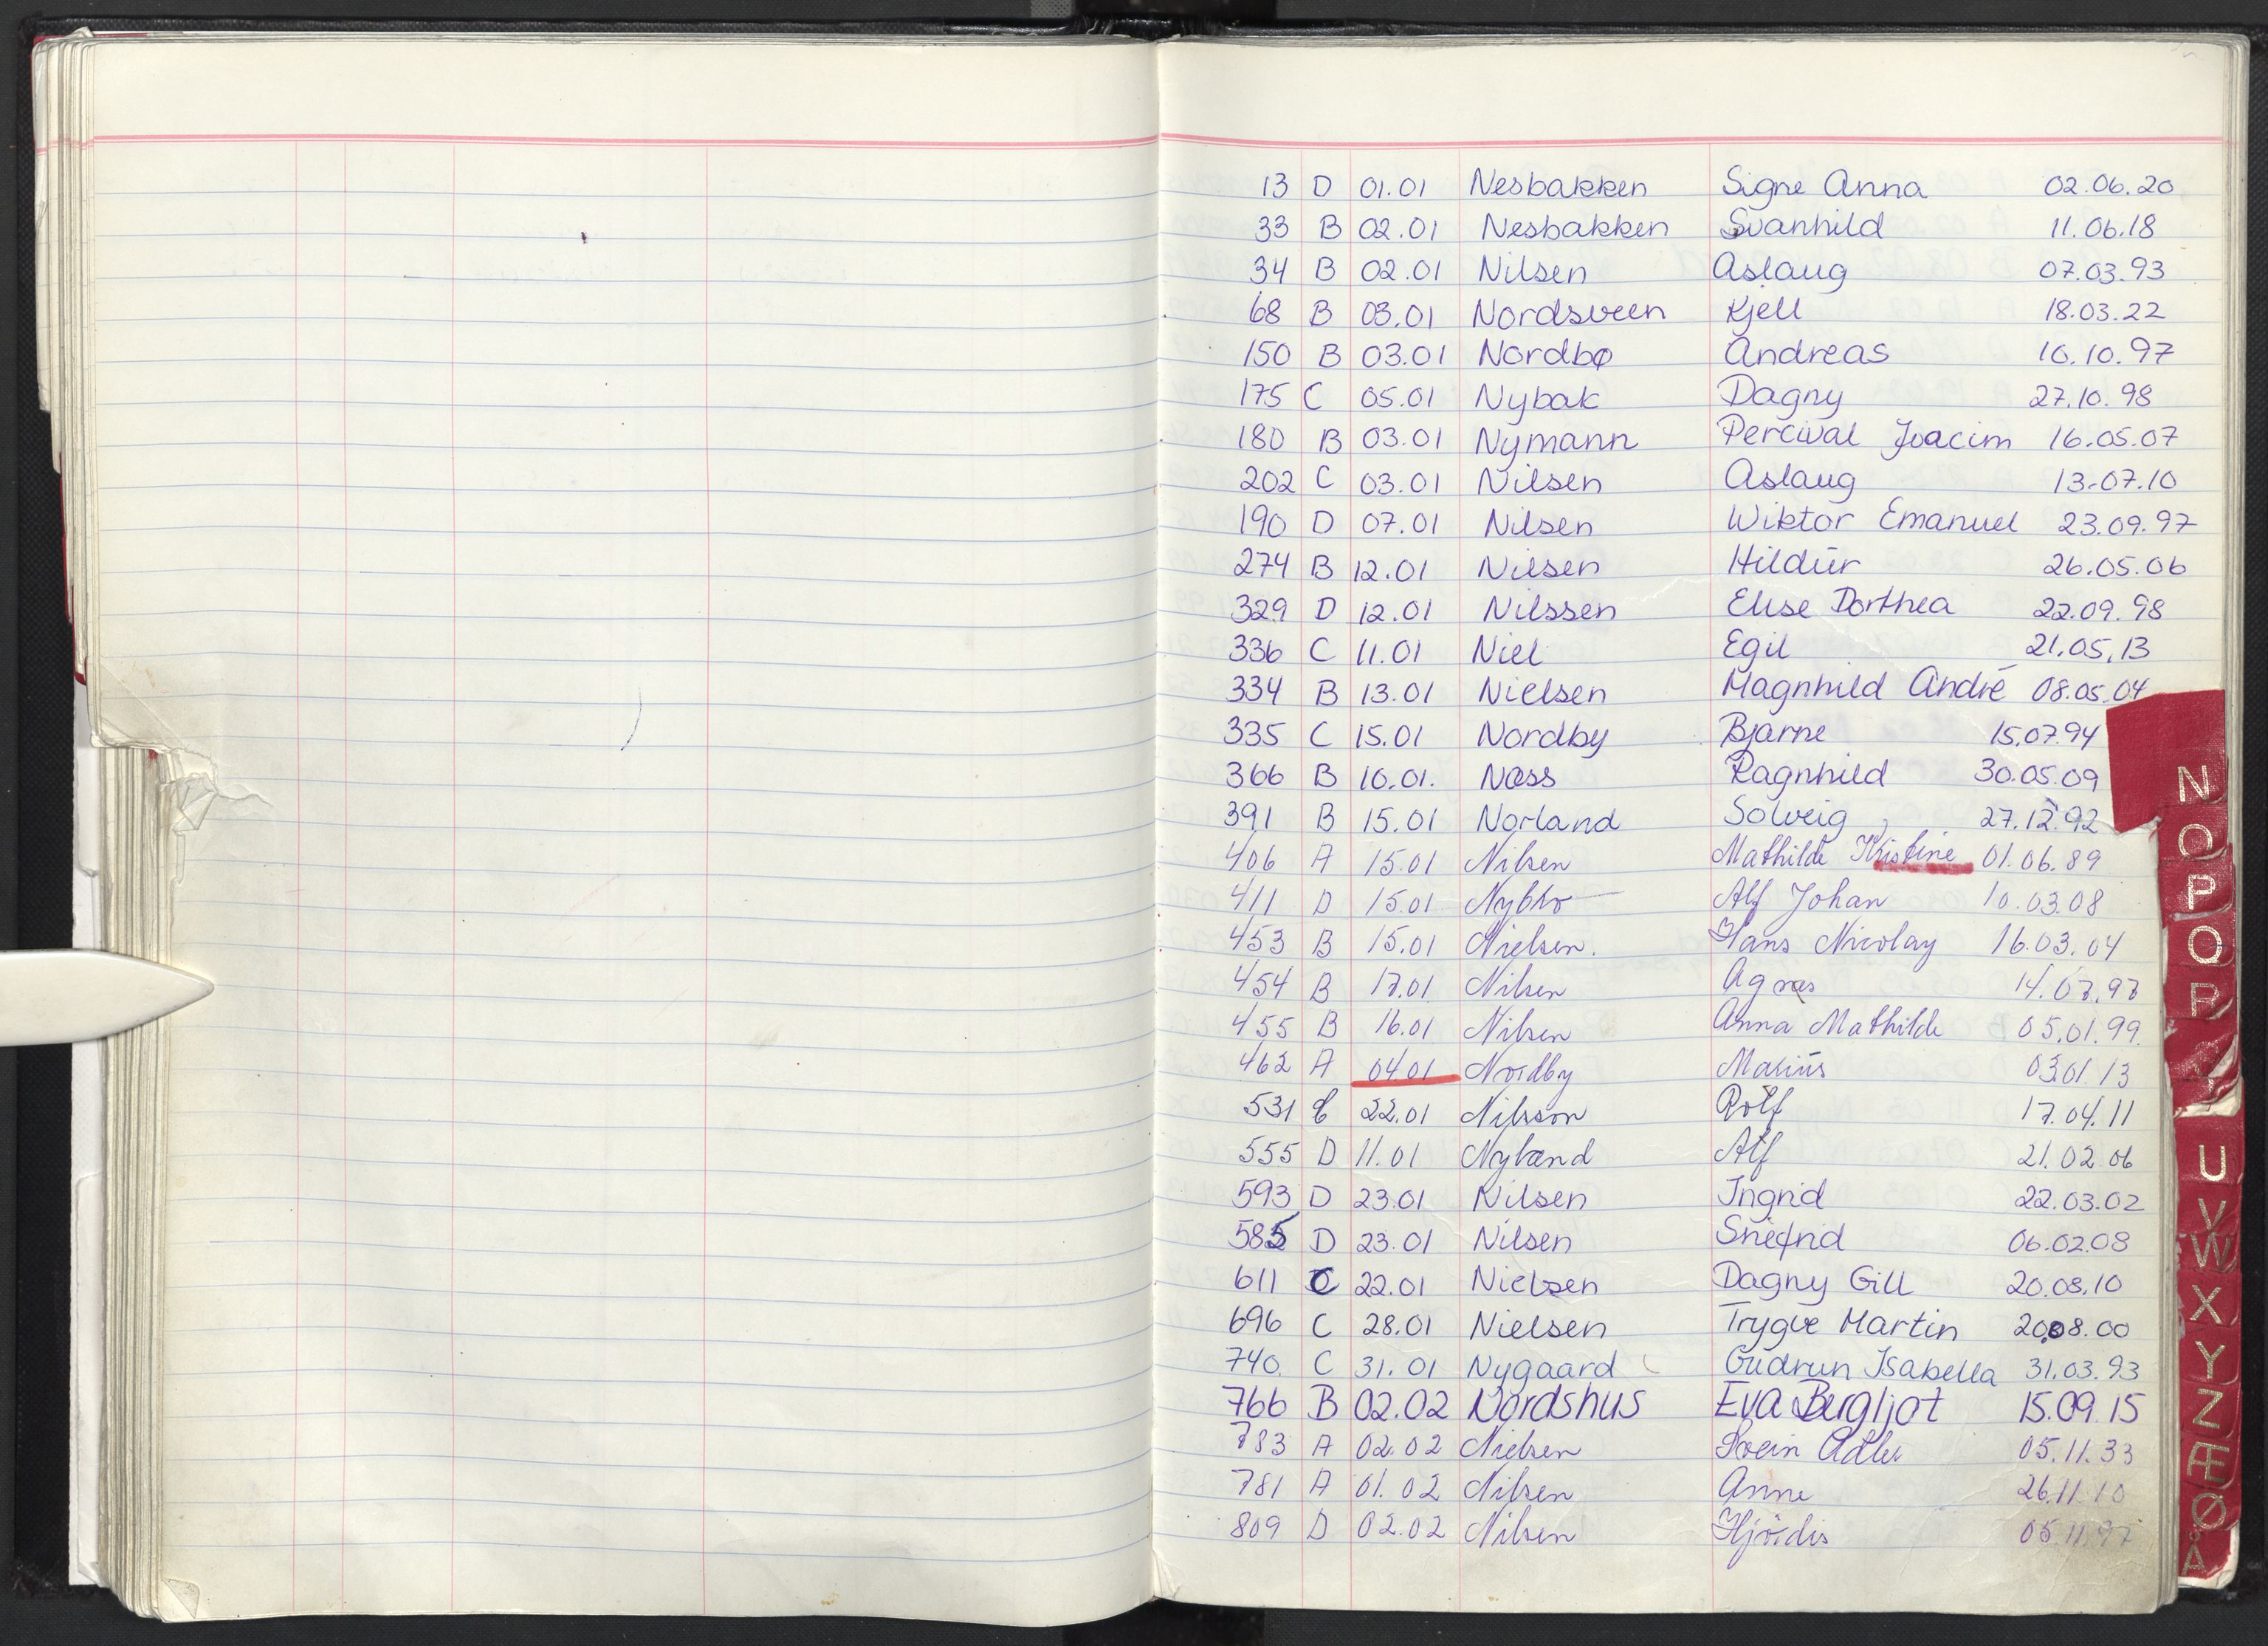 13 D 01.01 Nesbakken Signe Anna 02.06.20
33 B 02.01 Nesbakken Svanhild 11.06.18
34 B 02.01 Nilsen Aslaug 07.03.93
68 B 03.01 Nordsveen Kjell 18.03.22
150 B 03.01 Nordbø Andreas 10.10.97
175 C 05.01 Nybak Dagny 27.10.98
180 B 03.01 Nymann Percival Joacim 16.05.07
202 C 03.01 Nilsen Aslaug 13.07.10
190 D 07.01 Nilsen Wiktor Emanuel 23.09.97
274 B 12.01 Nilsen Hildur 26.05.06
329 D 12.01 Nilssen Elise Dorthea 22.09.98
336 C 11.01 Niel Egil 21.05.13
334 B 13.01 Nielsen Magnhild André 08.05.04
335 C 15.01 Nordby Bjarne 15.07.94
366 B 10.01. Næss Ragnhild 30.05.09
391 B 15.01 Norland Solveig 27.12.92
406 A 15.01 Nilsen Mathilde Kristine 01.06.89
411 D 15.01 Nybro Alf Johan 10.03.08
453 B 15.01 Nielsen. Hans Nicolay 16.03.04
454 B 17.01 Nilsen Agnes 14.07.97
455 B 16.01 Nilsen Anna Mathilde 05.01.99
462 A 04.01 Nordby Marius 03.01.13
531 C 22.01 Nilsson Rolf 17.04.11
555 D 11.01 Nyland Alf 21.02.06
593 D 23.01 Nilsen Ingrid 22.03.02
585 D 23.01 Nilsen Snefrid 06.02.08
611 C 22.01 Nielsen Dagny Gill 20.08.10
696 C 28.01 Nielsen Trygve Martin 20.08.00
740 C 31.01 Nygaard Gudrun Isabella 31.03.93
766 B 02.02 Nordshus Eva Bergljot 15.09.15
783 A 02.02 Nielsen Svein Adler 05.11.33
781 A 01.02 Nilsen Anne 26.11.10
809 D 02.02 Nilsen Hjördis 05.11.97
N
O
P
Q
R
U
V
W
X
Y
Z
Æ
Ø
Å